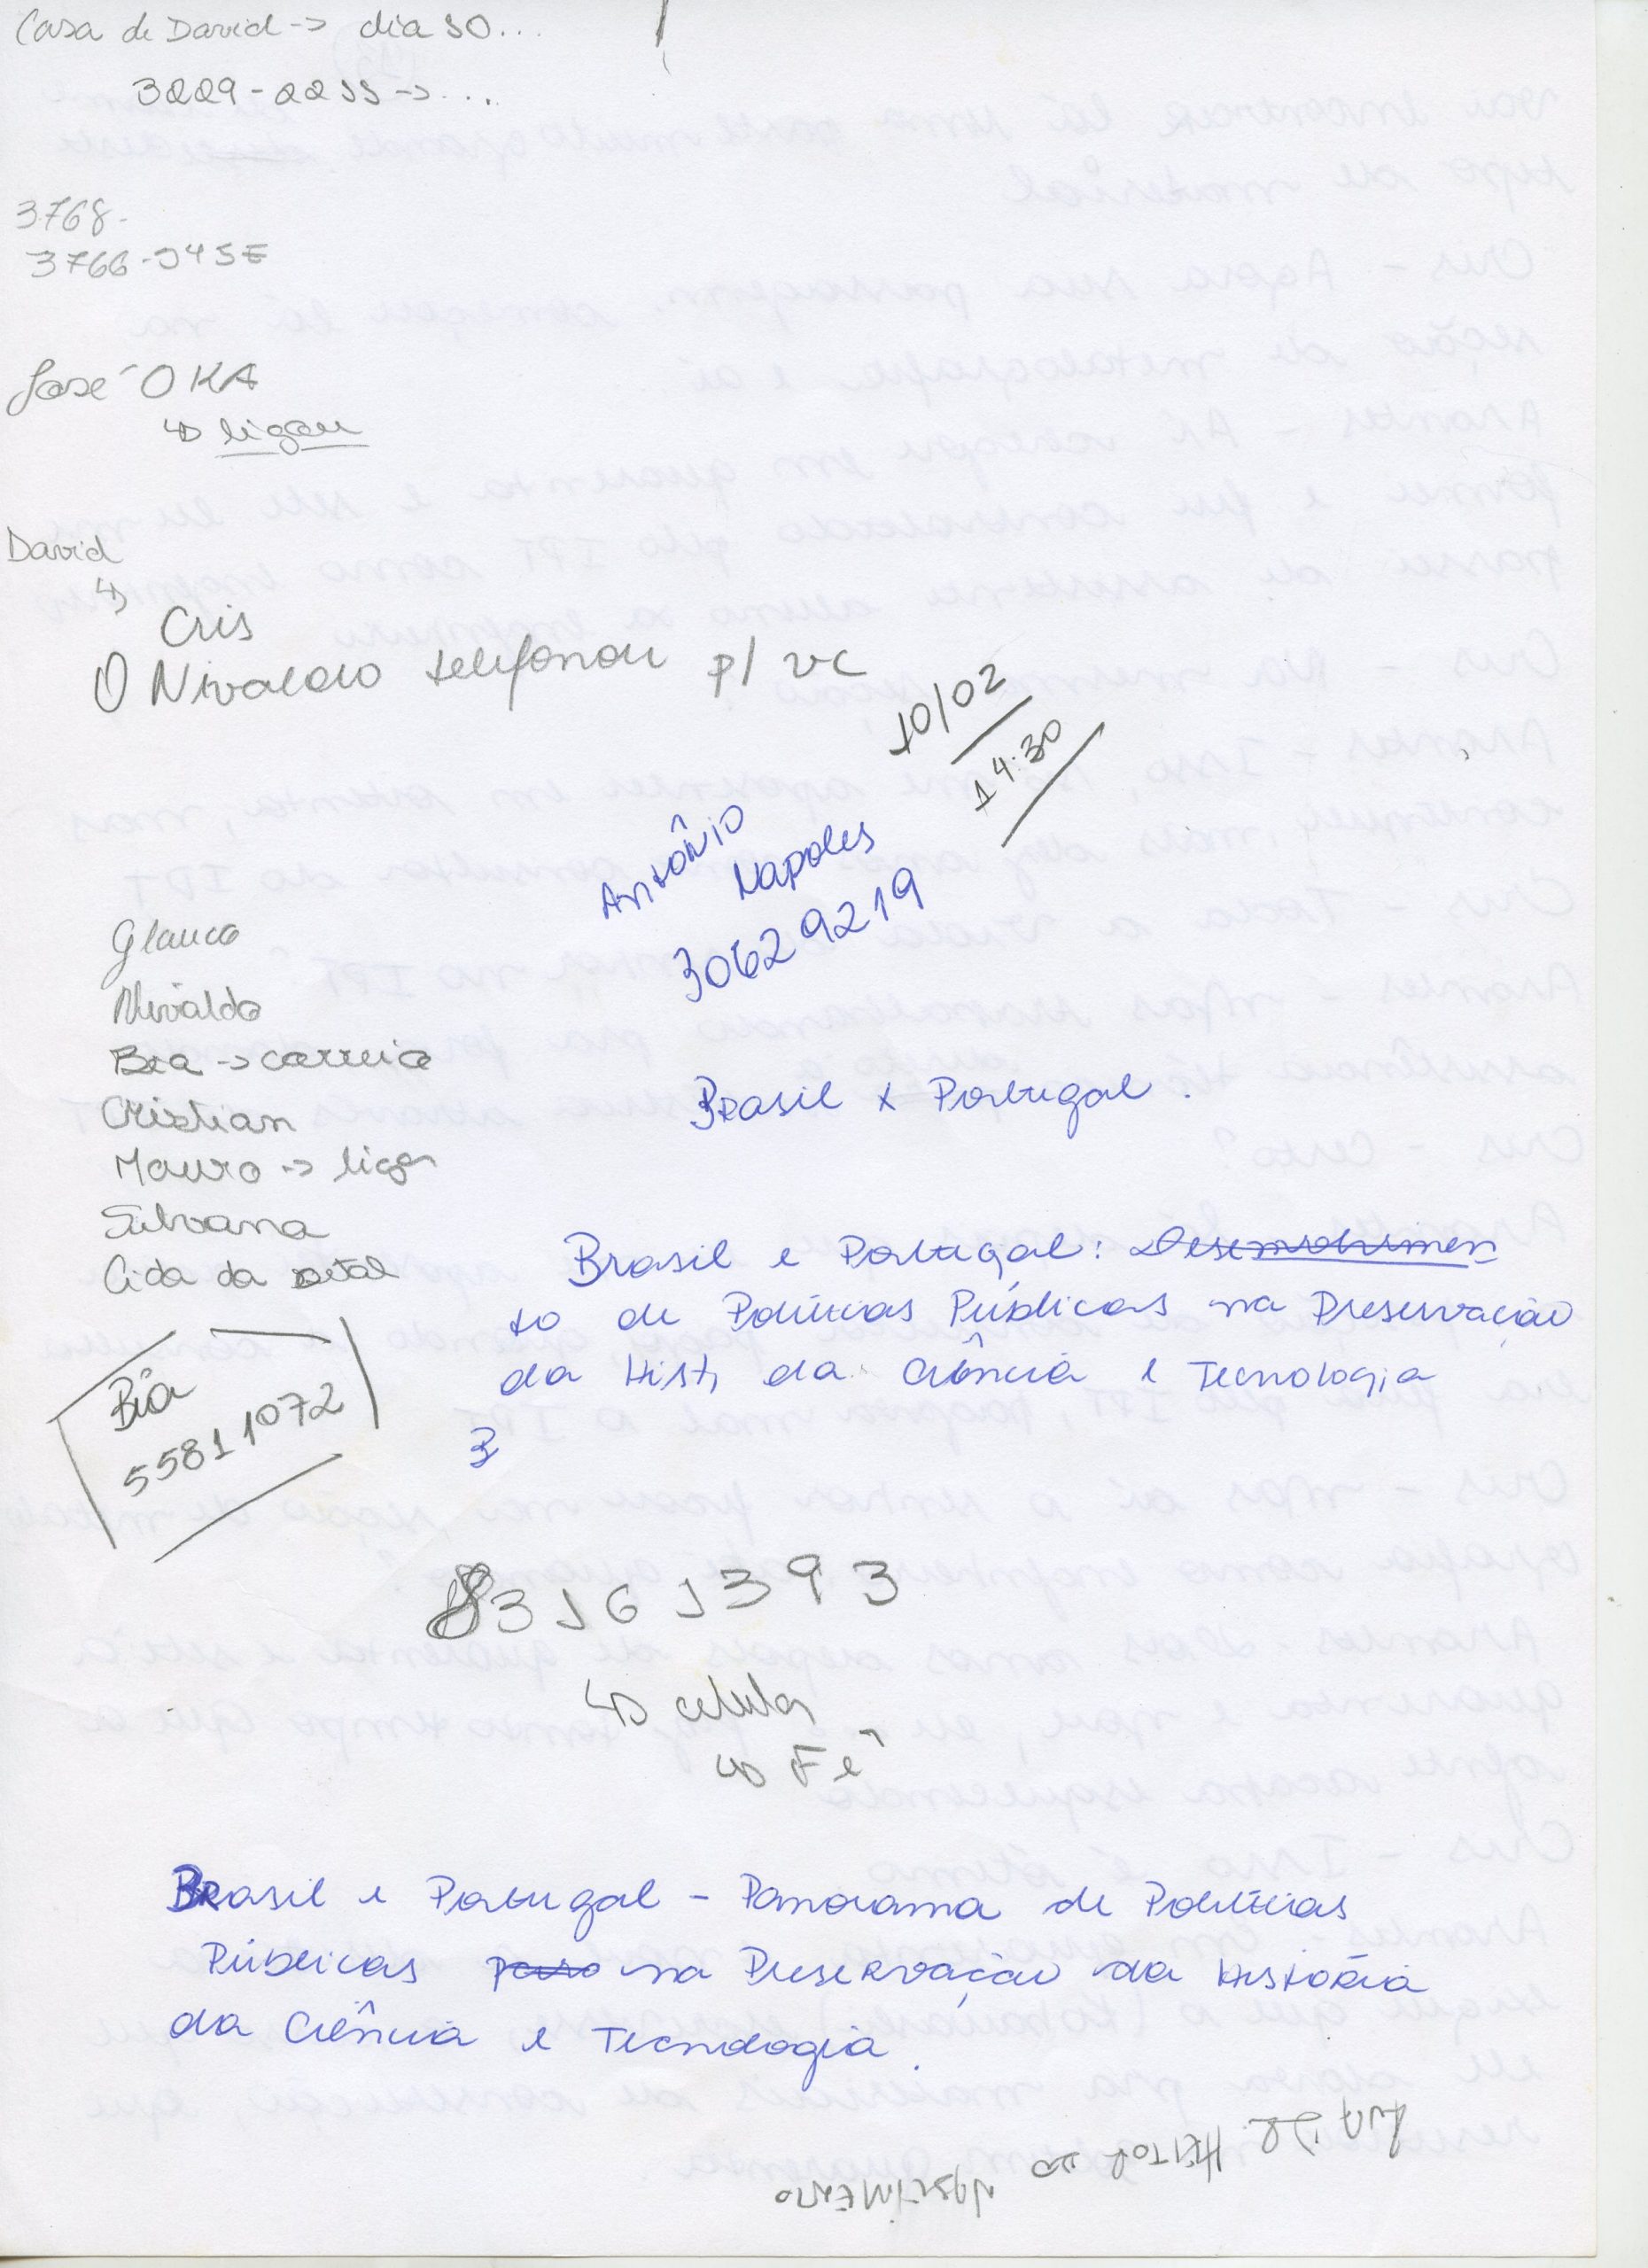 Casa de David -> dia 10...
3229-2211 -> ...
3768-
3766-
José OKA
↳ ligou
David
↳
Cris
O Nivaldo telefonou p/ vc
10/02
14:30
Antônio
Napoles
30629219
Glauco
Nivaldo
Bea ->
Cristian
Mauro -> ligar
Silvana
Cida da
Brasil x Portugal.
Brasil e Portugal: Desenvolvimen
to de Políticas Públicas na Preservação
da Hist, da Ciência e Tecnologia
B
Bia
55811072
83161393
↳ celular
↳ Fê
Brasil e Portugal - Panorama de Políticas
Públicas para na Preservação da História
da Ciência e Tecnologia.
HEITOR
NASCIMENTO